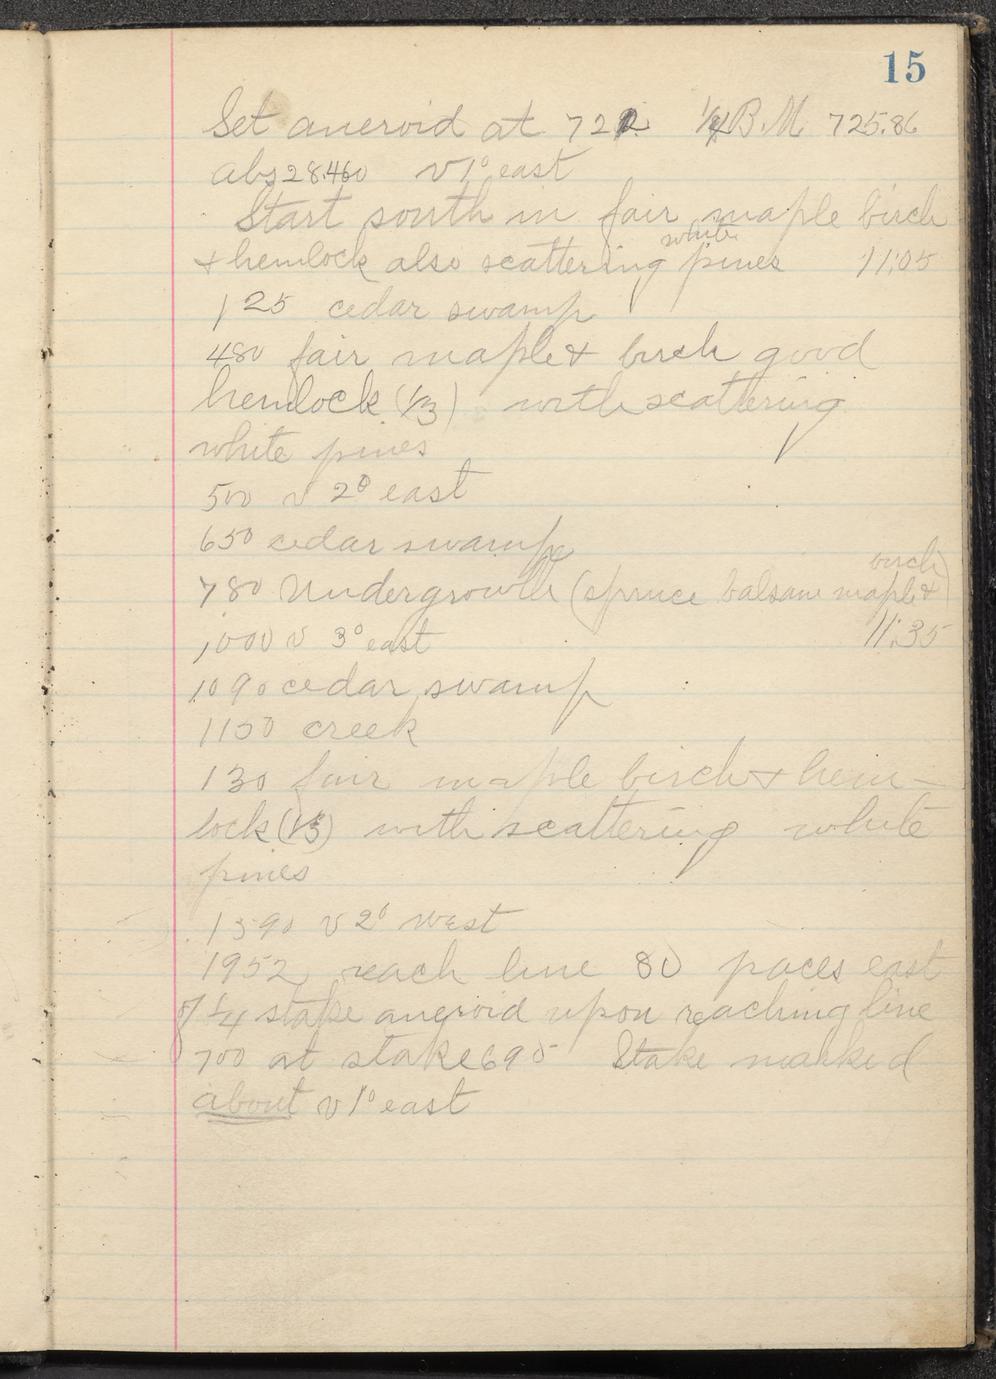 15
Set aneroid at 722 1/4 B.M 725.86
abs 28.460 v 1° east
Start south in fair maple birch
& hemlock also scattering white pines 11:05
125 cedar swamp
480 fair maple & birch good
hemlock (1/3) with scattering
white pines
500 v 2° east
650 cedar swamp
780 Undergrowth (spruce balsam maple & birch)
1,000 v 3° east 11:35
1090 cedar swamp
1150 creek
130 fair maple birch & hem-
lock (1/3) with scattering white
pines
1390 v 2° west
1952 reach line 80 paces east
of 1/4 stake aneroid upon reaching line
700 at stake 695 Stake marked
about v 1° east